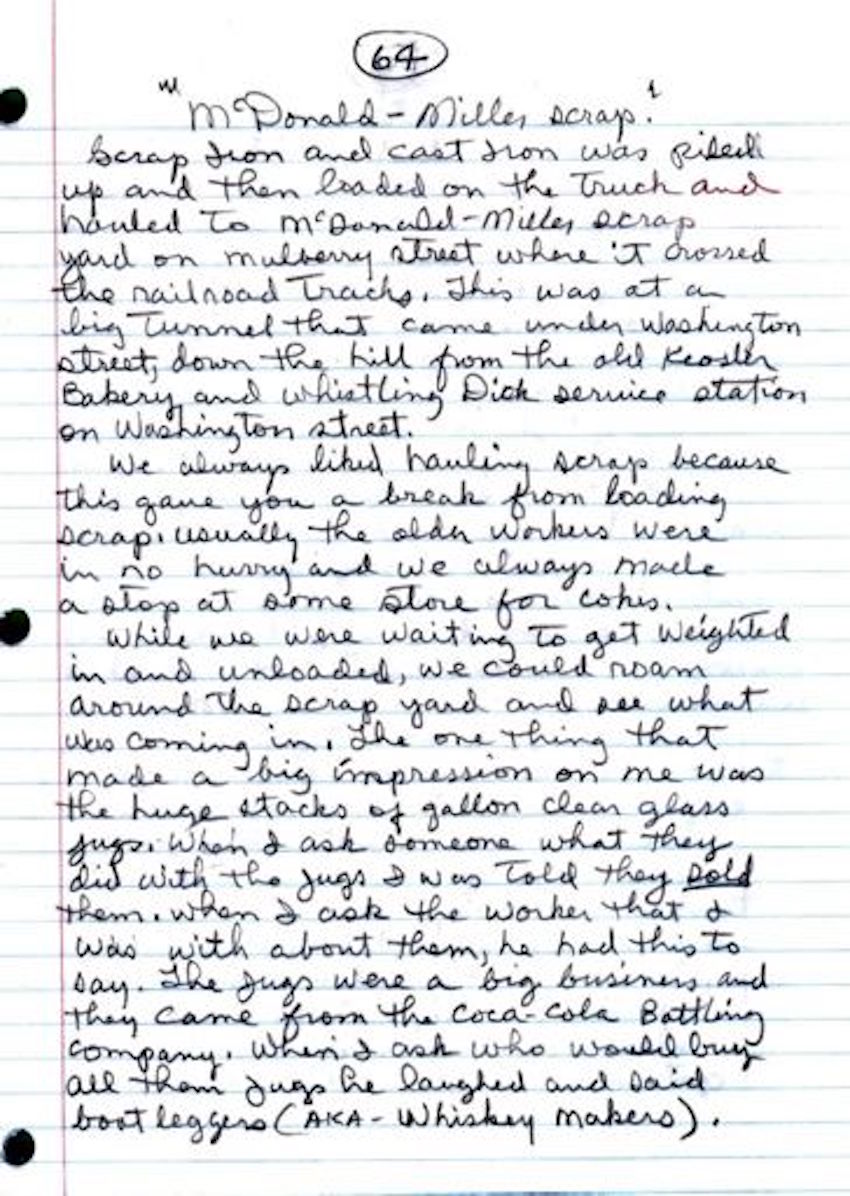 64
"McDonald-Miller scrap."
Scrap Iron and cast Iron was piled
up and then loaded on the Truck and
hauled To McDonald-Miller scrap
yard on mulberry street where it crossed
the railroad Tracks. This was at a
big Tunnel that came under Washington
street, down the hill from the old Keosler
Bakery and whistling Dick service station
on Washington street.
We always liked hauling scrap because
this gave you a break from loading
scrap. usually the older workers were
in no hurry and we always made
a stop at some store for cokes.
While we were waiting To get weighted
in and unloaded, we could roam
around the scrap yard and see what
was coming in. The one thing that
made a big impression on me was
the huge stacks of gallon clear glass
jugs. When I ask someone what they
did with the jugs I was Told they sold
them. when I ask the worker that I
was with about them, he had this to
say. The jugs were a big business and
they came from the Coca-Cola Bottling
company. When I ask who would buy
all them jugs he laughed and said
bootleggers (AKA - Whiskey makers).